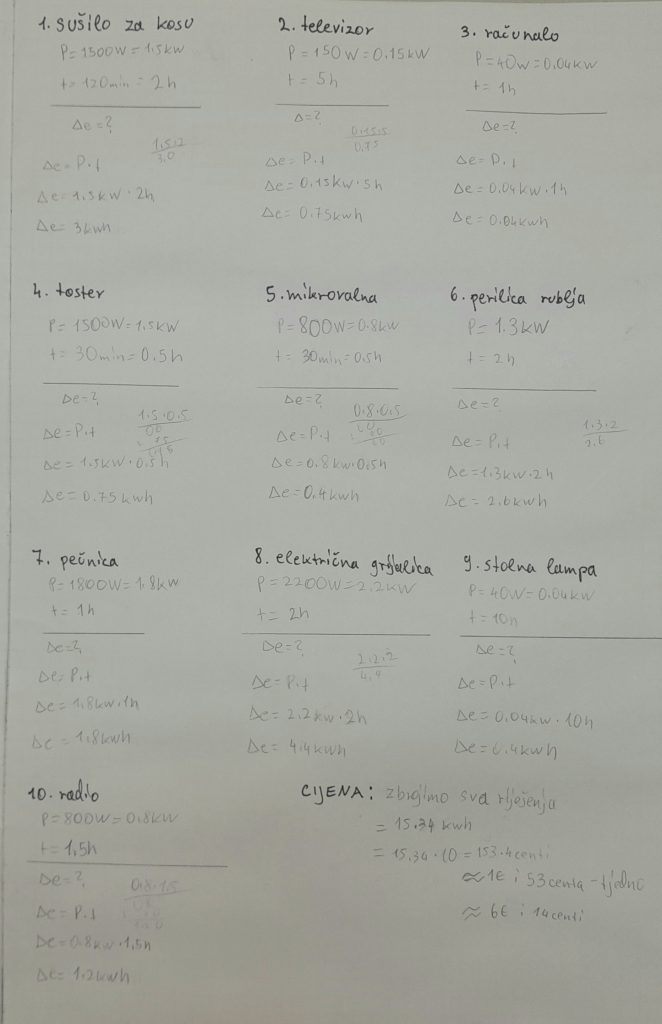 1. sušilo za kosu
P= 1500W = 1.5kW
t = 120min = 2h
Δe = ?
1.5.2
3.0
Δe = P.t
Δe = 1.5kW . 2h
Δe = 3kwh
2. televizor
P = 150W = 0.15kW
t = 5h
Δ=?
0.15.5
0.75
Δe = P.t
Δe = 0.15kw . 5h
Δe = 0.75kwh
3. računalo
P = 40w = 0.04kW
t = 1h
Δe =?
Δe = P.t
Δe = 0.04kw . 1h
Δe = 0.04kwh
4. toster
P= 1500W= 1.5kW
t = 30min= 0.5h
Δe =?
1.5.0.5
Δe = P.t
Δe = 1.5kW . 0.5h
Δe = 0.75kwh
5. mikrovalna
P = 800W = 0.8kW
t = 30min = 0.5h
Δe = ?
0.8.0.5
Δe = P.t
Δe = 0.8kw.0.5h
Δe = 0.4kwh
6. perilica rublja
P= 1.3kW
t = 2h
Δe = ?
1.3.2
2.6
Δe = P.t
Δe = 1.3kW . 2h
Δe = 2.6kwh
7. pećnica
P= 1800W = 1.8kW
t = 1h
Δe =?
Δe= P.t
Δe = 1.8kw.1h
Δe = 1.8kwh
8. električna grijalica
P = 2200W = 2.2kW
t = 2h
Δe = ?
2.2.2
4.4
Δe = P.t
Δe = 2.2kw . 2h
Δe = 4.4kwh
9. stolna lampa
P= 40W = 0.04kW
t = 10h
Δe = ?
Δe = P.t
Δe = 0.04kw . 10h
Δe = 0.4kwh
10. radio
P= 800W= 0.8kW
t = 1,5h
Δe = ?
0.8.1.5
Δe = P.t
Δe = 0.8kw . 1.5h
Δe = 1.2kwh
CIJENA: zbrojimo sva rješenja
= 15.34 kwh
= 15.34 . 10 = 153.4centi
≈ 1€ i 53centa - tjedno
≈ 6€ i 14centi